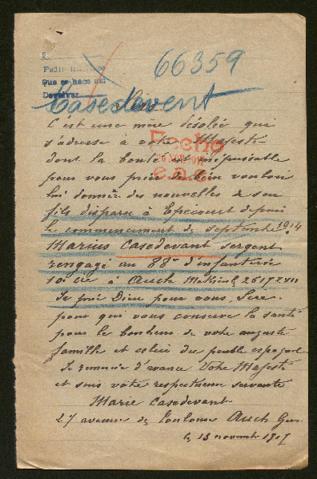 66359
Casedevent
Sire
C'est une mère désolée qui
s'adresse à votre Majesté
dont la bonté est inépuisable
pour vous prier de bien vouloir
lui donner des nouvelles de son
fils disparu à Epicourt depuis
le commencement de septembre 1914
Marius Casedevant sergent
rengagé au 88e d'infanterie
10e Cie à Auch
de prie Dieu pour vous, Sire
pour que vous conserve la santé
pour le bonheur de votre auguste
famille et celui du peuple espagnol
Je remercie d'avance Votre Majesté
et suis votre respectueuse servante
Marie Casedevant
27 avenue de Toulouse Auch Gers
le 13 novembre 1917